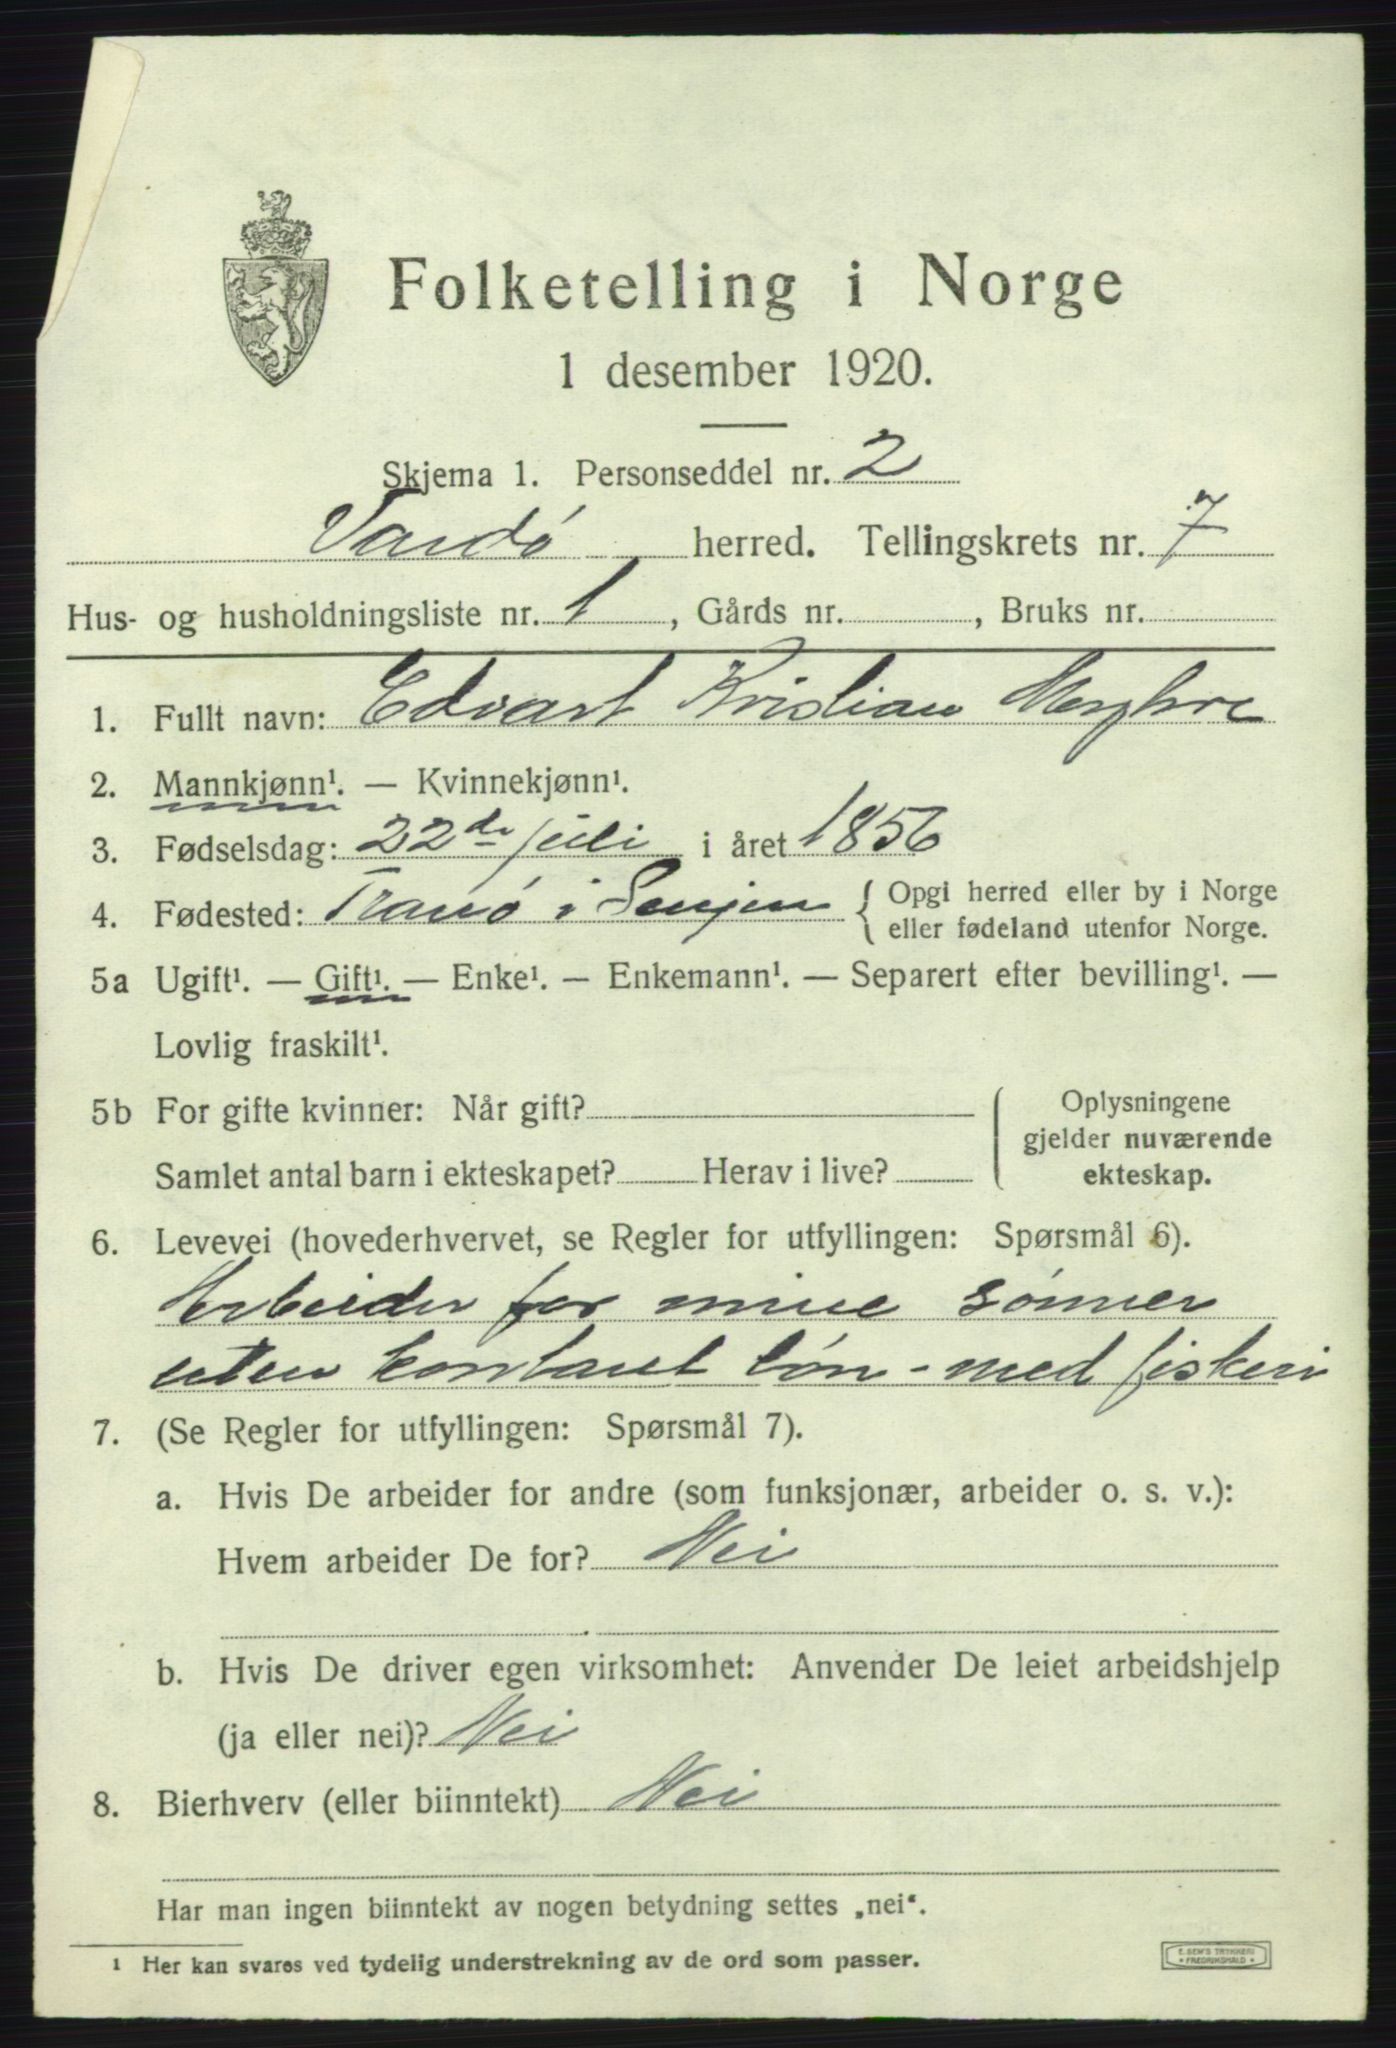 Folketelling i Norge
1 desember 1920.
Skjema 1. Personseddel nr. 2
Vardø herred. Tellingskrets nr. 7
Hus- og husholdningsliste nr. 1, Gårds nr. , Bruks nr.
1. Fullt navn: Edvart Kristian
2. Mannkjønn¹. — Kvinnekjønn¹.
3. Fødselsdag: 22de juli i året 1856
4. Fødested: Tranø i Senjen { Opgi herred eller by i Norge
eller fødeland utenfor Norge.
5a Ugift¹. — Gift¹. — Enke¹. — Enkemann¹. — Separert efter bevilling¹. —
Lovlig fraskilt¹.
5b For gifte kvinner: Når gift?
Samlet antal barn i ekteskapet? Herav i live?
Oplysningene
gjelder nuværende
ekteskap.
6. Levevei (hovederhvervet, se Regler for utfyllingen: Spørsmål 6).
Arbeider for mine sønner
uten kontant løn - med fiskeri
7. (Se Regler for utfyllingen: Spørsmål 7).
a. Hvis De arbeider for andre (som funksjonær, arbeider o. s. v.):
Hvem arbeider De for? Nei
b. Hvis De driver egen virksomhet: Anvender De leiet arbeidshjelp
(ja eller nei)? Nei
8. Bierhverv (eller biinntekt) Nei
Har man ingen biinntekt av nogen betydning settes „nei“.
¹ Her kan svares ved tydelig understrekning av de ord som passer.
E. SEM'S TRYKKERI
* FREDRIKSHALD *